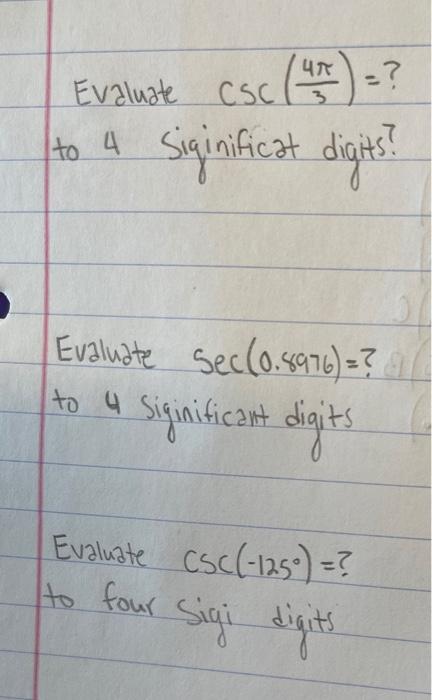 Evaluate csc(4π/3)=?
to 4 Siginificat digits?
Evaluate Sec(0.8976)=?
to 4 Siginificant digits
Evaluate csc(-125°)=?
to four Sigi digits